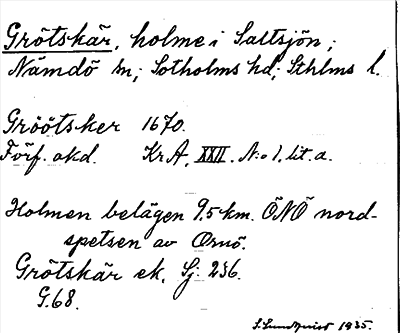 Grötskär, holme i Saltsjön;
Nämdö sn; Sotholms hd; Sthlms l.
Gröötsker 1670.
Förf. okd. KrA, XXII. N:o 1. lit. a.
Holmen belägen 9.5 km. ÖNÖ nord-
spetsen av Ornö.
Grötskär ek. Sj. 236.
G.68.
S. Sundqvist 1935.